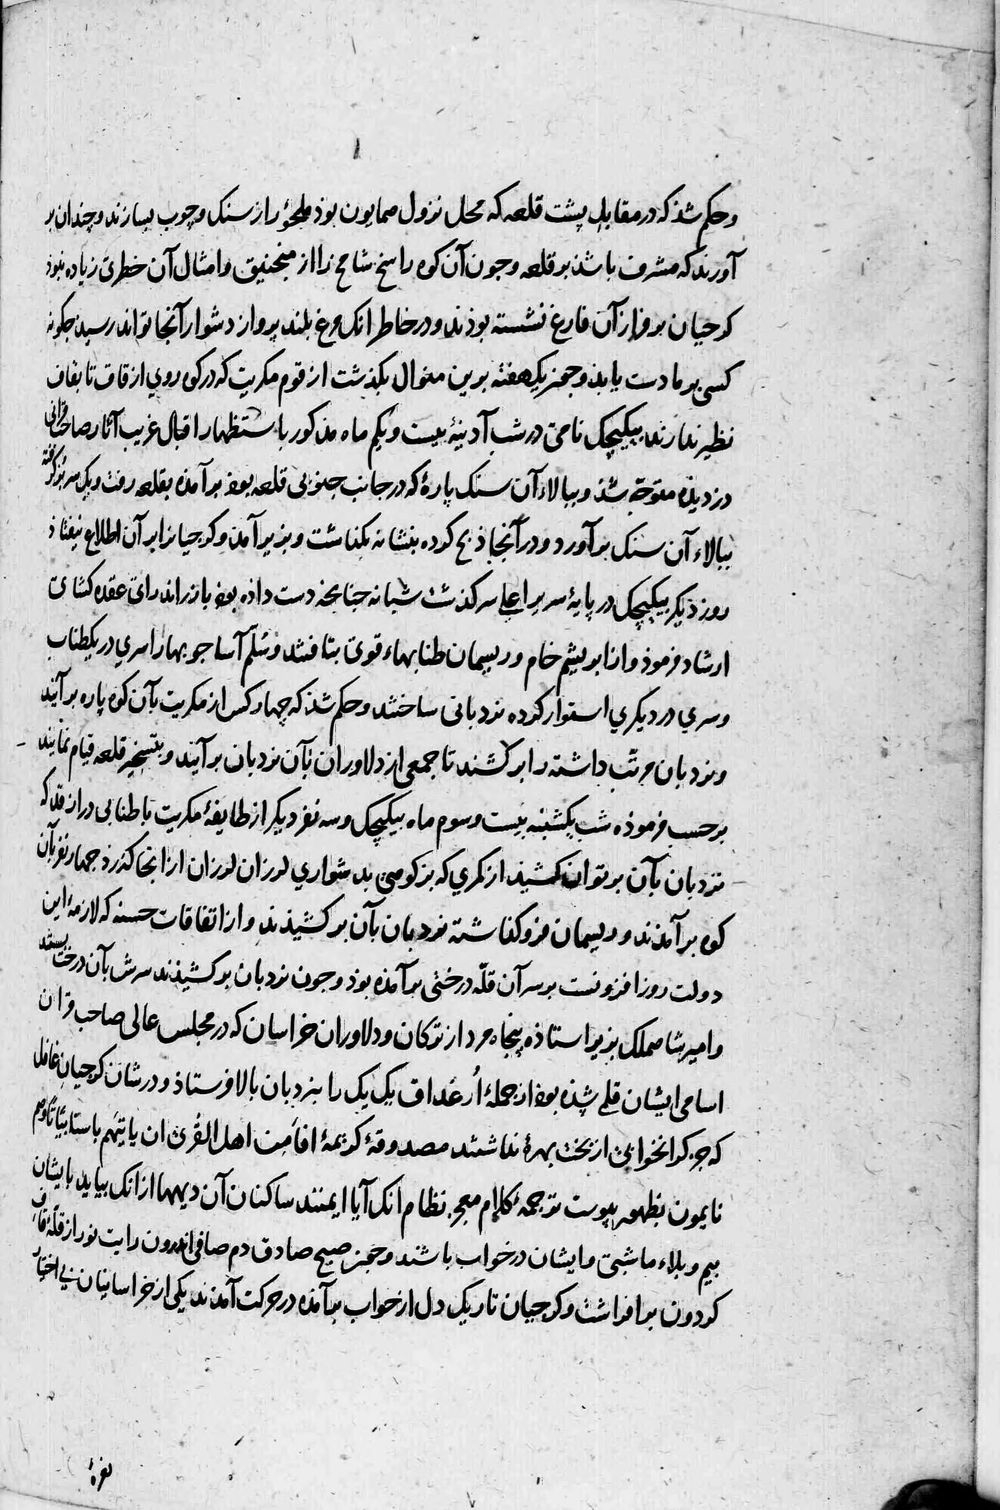 وحکم شذ که در مقابل پشت قلعه که محل نزول همایون بوذ ملجؤر از سنک وچوب بسازند وچندان بر
آورند که مشرف باشذ بر قلعه وچون آن کوه راسخ شامخ را از منجنیق وامثال آن خطری زیاده نبوذ
کرجیان بر فراز آن فارغ نشسته بوذند ودر خاطر انک مرغ بلند پرواز دشوار آنجا تواند رسیذ جکونه
کسی بر ما دست یابذ وجون یک هفته برین منوال بکذشت از قوم مکریت که در کوه روی از قاف تا بقاف
نظیر ندارند بیکیچک نامی در شب آدینهٔ بیست ویکم ماه مذکور باستظهار اقبال غریب آثار صاحب قرانی
دزدیذه متوجه شذ وببالاء آن سنک پارهٔ که در جانب جنوبی قلعه بوذ بر آمذه بقلعه رفت ویک سر بز کرفته
ببالاء آن سنک بر آورد ودر آنجا ذبح کرده بنشانه بکذاشت وبزیر آمذ وکرجیانرا بر آن اطلاع نیفتاذ
روز دیکر بیکیچک در پایهٔ سریر اعلی سرکذشت شبانه چنانچه دست داذه بوذ باز راند رای عقده کشای
ارشاد فرموذ واز ابریشم خام وریسمان طنابهاء قوی بتافتند وسلّم آسا چوبها را سری در یک طناب
وسری در دیکری استوار کرده نردبانی ساختند وحکم شذ که چهار کس از مکریت بآن کوه پاره بر آیند
ونردبان مرتب داشته را بر کشند تا جمعی از دلاوران بآن نردبان بر آیند وبتسخیر قلعه قیام نمایند
بر حسب فرموذه شب یکشنبه بیست وسوم ماه بیکیچک وسه نفر دیکر از طایفهٔ مکریت با طنابی دراز قد که
نردبان بآن بر توان کشیذ از کمری که بز کوهی بدشواری لرزان لرزان از آنجا کذرذ جهار نفر بآن
کوه بر آمذند وریسمان فرو کذاشته نردبان بآن بر کشیذند واز اتفاقات حسنه که لازمهٔ این
دولت روز افزونست بر سر آن قلّه درختی بر آمذه بوذ وجون نردبان بر کشیذند سرش بآن درخت بستند
وامیر شاه ملک بزیر استاذه پنجاه مرد از ترکان ودلاوران خراسان که در مجلس عالی صاحب قران
اسامی ایشان قلمی شذه بوذ از جملهٔ اُرغداق یک یک را بنردبان بالا فرستاذ ودر شان کرجیان غافل
که جز کرانخوابی از بخت بهرهٔ نداشتند مصدوقهٔ کریمهٔ افأمن اهل القُری ان یأتیَهم باسنا بیَاتًا وهم
نایمون بظهور پیوست ترجمهٔ کلام معجز نظام انک آیا ایمنند ساکنان آن دیهها از انک بیاید بایشان
بیم وبلاء ما شبی وایشان در خواب باشند وجون صبح صادق دم صافی اندرون رایت نور از قلّهٔ قاف
کردون بر افراشت وکرجیان تاریک دل از خواب بر آمذه در حرکت آمذند یکی از خراسانیان بی اختیار
نعرهٔ